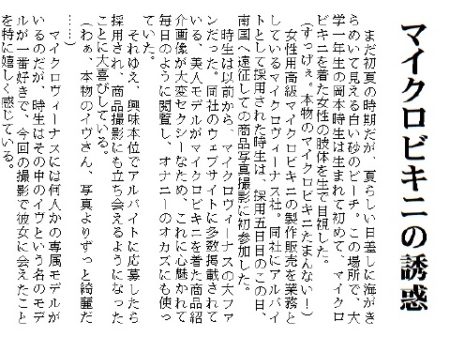 マイクロビキニの誘惑
まだ初夏の時期だが、夏らしい日差しに海がき
らめいて見える白い砂のビーチ。この場所で、大
学一年生の岡本時生は生まれて初めて、マイクロ
ビキニを着た女性の肢体を生で目視した。
(すっげぇ。本物のマイクロビキニたまんない!)
女性用高級マイクロビキニの製作販売を業務と
しているマイクロヴィーナス社。同社にアルバイ
トとして採用された時生は、採用五日目のこの日、
南国へ遠征しての商品写真撮影に初参加した。
時生は以前から、マイクロヴィーナスの大ファ
ンだった。同社のウェブサイトに多数掲載されて
いる、美人モデルがマイクロビキニを着た商品紹
介画像が大変セクシーなため、これに心魅かれて
毎日のように閲覧し、オナニーのオカズにも使っ
ていた。
それゆえ、興味本位でアルバイトに応募したら
採用され、商品撮影にも立ち会えるようになった
ことに大喜びしている。
(わぁ、本物のイヴさん、写真よりずっと綺麗だ
……)
マイクロヴィーナスには何人かの専属モデルが
いるのだが、時生はその中のイヴという名のモデ
ルが一番好きで、今回の撮影で彼女に会えたこと
を特に嬉しく感じている。